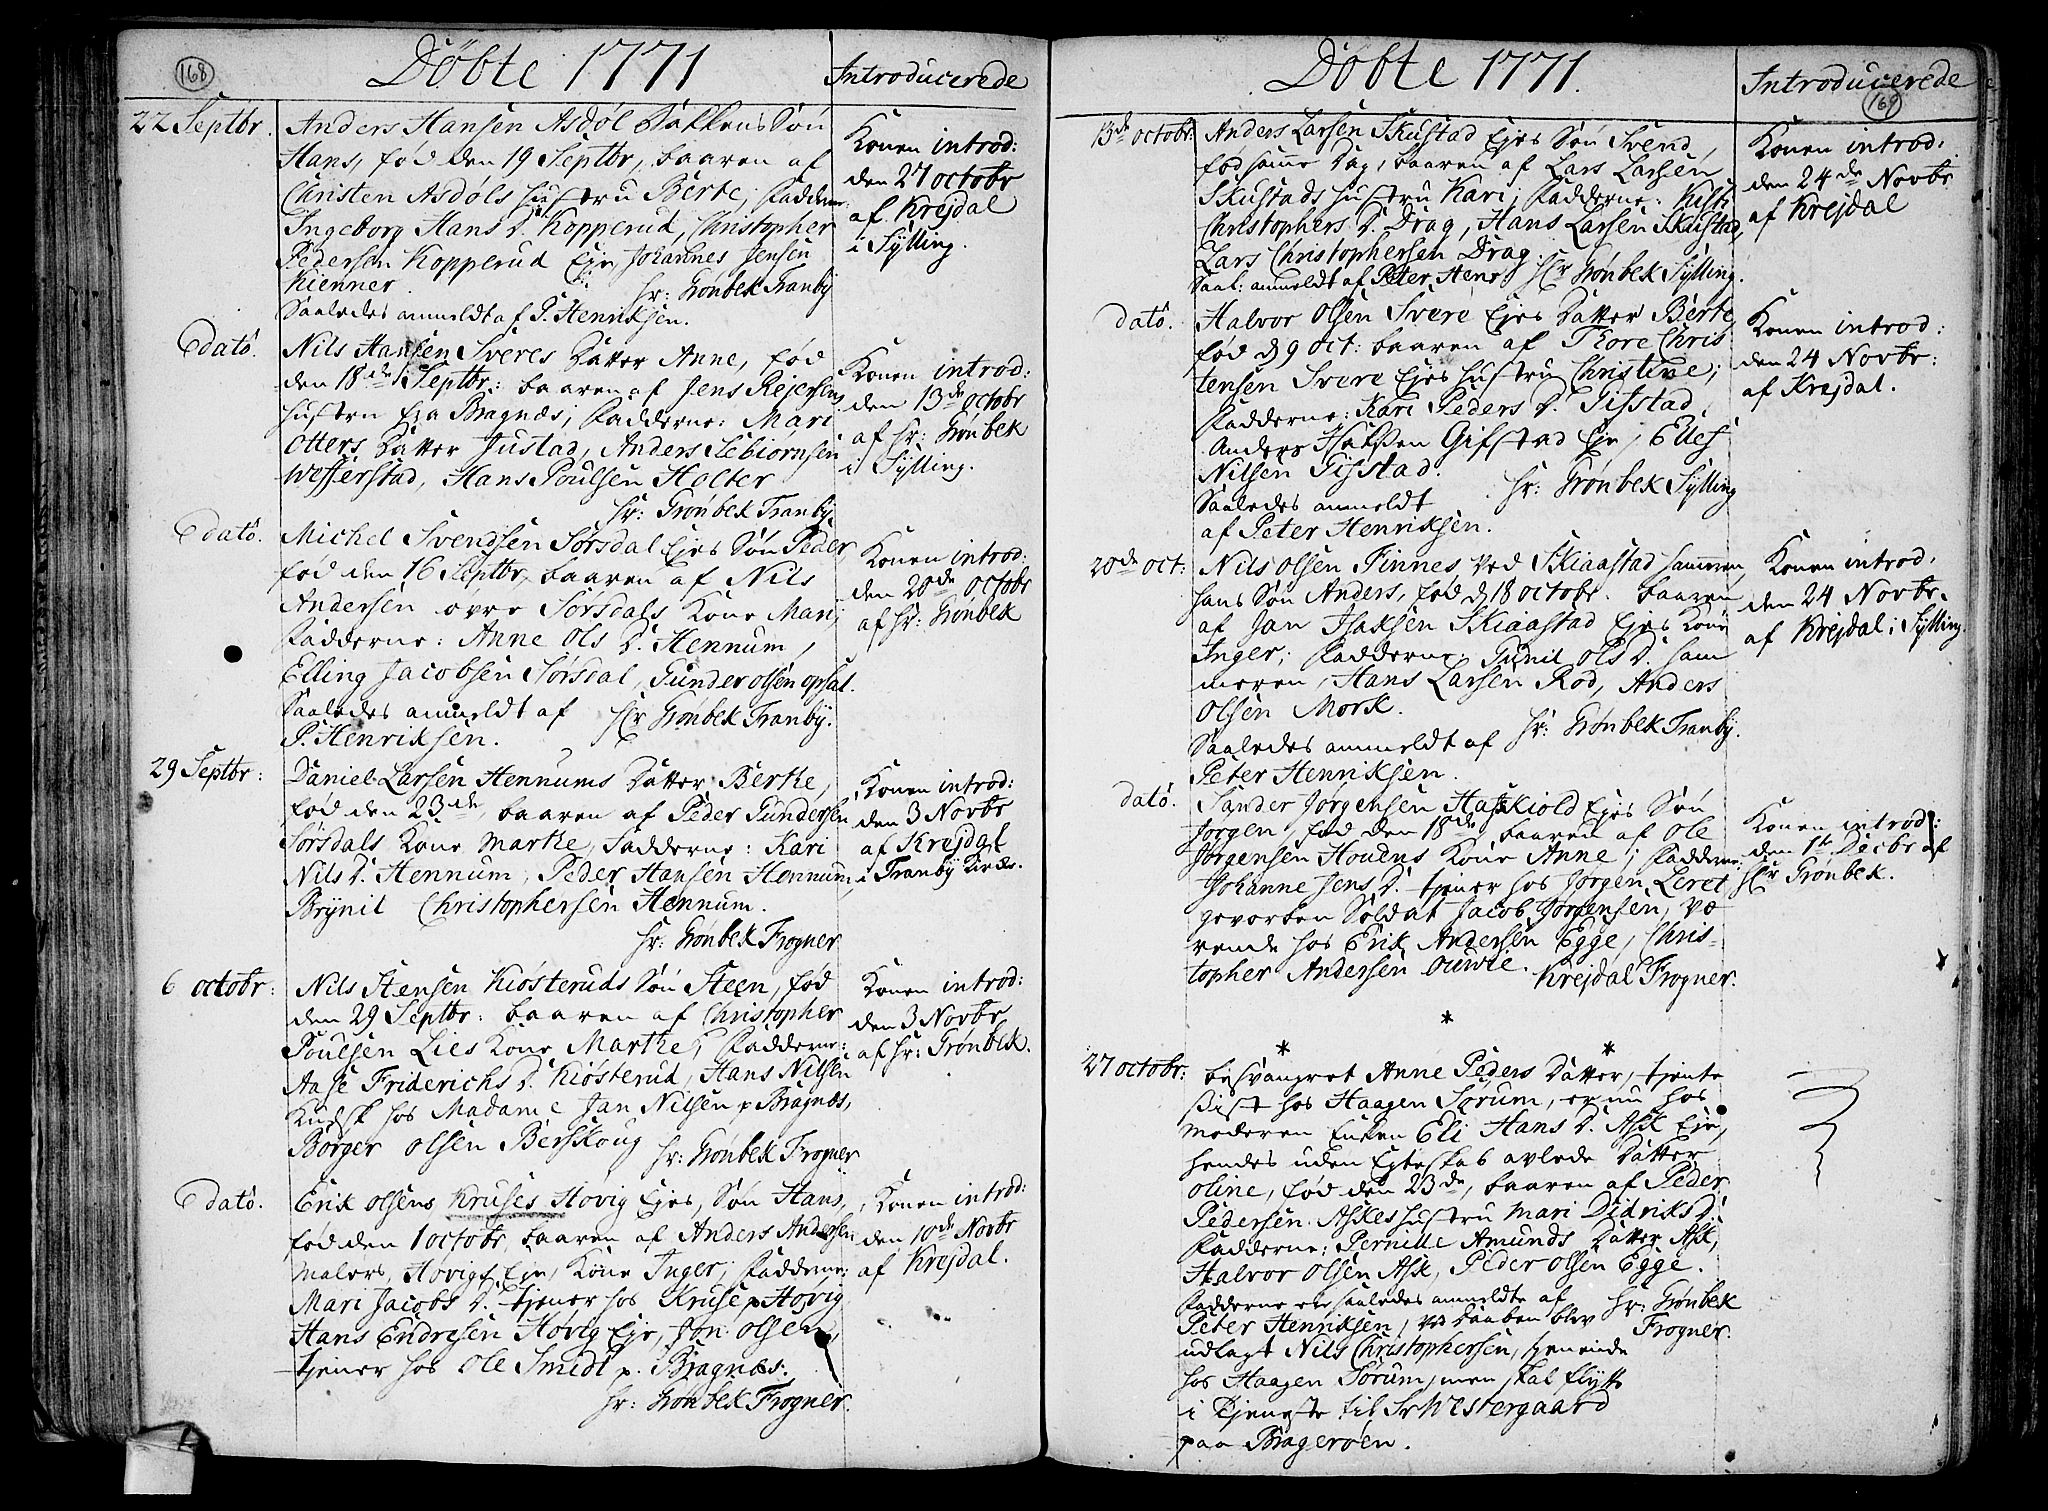 168
Döbte 1771
Introducerede
22 Septbr.
Anders Hansen Asdøl Bakkens Søn
Hans, fød den 19 Septbr, baaren af
Christen Asdøls Hustru Berte; Faddere
Ingeborg Hans D. Kopperud, Christopher
Pedersen Kopperud Eje, Johannes Jensen
Kienner.
Hr: Grönbek Tranby
Saaledes anmeldt af P. Henriksen.
Konen introd:
den 27 octobr
af Krejdal
i Sylling.
dato.
Nils Hansen Sveres Datter Anne, fød
den 18de Septbr: baaren af Jens Rejersens
Hustru Eza Bragnæs; Fadderne: Mari
Otters Datter Justad, Anders Sebiørnsen
Wefferstad, Hans Poulsen Holter
Hr: Grönbek Tranby
Konen introd:
den 13de octobr
af Hr: Grönbek
i Sylling.
dato.
Michel Svendsen Sørsdal Ejes Søn Peder
fød den 16 Septbr, baaren af Nils
Andersen øvre Sørsdals Kone Mari,
Fadderne: Anne Ols D. Hennum,
Elling Jacobsen Sørsdal, Gunder olsen opsal.
Saaledes anmeldt af Hr Grönbek Tranby.
P. Henriksen.
Konen introd:
den 20de Octobr
af Hr: Grönbek
29 Septbr:
Daniel Larsen Hennums Datter Berthe,
fød den 23de, baaren af Peder Gundersen
Sørsdals Kone Marthe, Fadderne: Kari
Nils D. Hennum, Peder Hansen Hennum,
Brynil Christophersen Hennum.
Hr: Grönbek Frogner
Konen introd:
den 3 Novbr
af Krejdal
i Tranby Kirke.
6 octobr:
Nils Stensen Kiösteruds Søn Steen, fød
den 29 Septbr: baaren af Christopher
Poulsen Lies Kone Marthe; Fadderne:
Aase Friderichs D. Kiösterud, Hans Nilsen
Kudsk hos Madame Jan Nilsen p Bragnæs,
Börger Olsen Berskoug Hr: Grönbek Frogner
Konen introd:
den 3 Novbr
af Hr: Grönbek.
dato.
Erik Olsens Kruses Høvig Ejes, Søn Hans,
fød den 1 octobr, baaren af Anders Andersen
Malers, Høvigs Eje, Kone Inger; Faddere:
Mari Jacobs D. tjener hos Kruse p Høvig
Hans Endresen Høvig Eje, Jon Olsen,
tjener hos Ole Smidt p. Bragnæs.
Hr: Grönbek Frogner.
Konen introd:
den 10de Novbr
af Krejdal.
Döbte 1771.
Introducerede
169
13de octobr:
Anders Larsen Skustad Ejes Søn Svend,
fød samme Dag, baaren af Lars Larsen
Skustads Hustru Kari; Fadderne: Kisti
Christophers D. Drag, Hans Larsen Skustad,
Lars Christophersen Drag.
Saal: anmeldt af Peter Henr Hr Grönbek Sylling.
Konen introd:
den 24de Novbr
af Krejdal
dato.
Halvor Olsen Svere Ejes Datter Berte
fød d 9 oct: baaren af Thore Chris
tensen Svere Ejes Hustru Christine;
Fadderne: Kari Peders D. Gisstad,
Anders Gifstad Eje, Elles
Nilsen Gisstad.
Saaledes anmeldt Hr: Grönbek Sylling
af Peter Henriksen.
Konen introd:
den 24 Novbr:
af Krejdal.
20de oct:
Nils Olsen Finnes ved Skiaastad Hammeren,
hans Søn Anders, fød d 18 octobr. baaren
af Jan Isaksen Skiaastad Ejes Kone
Inger; Fadderne: Gunil Ols D. Ham
meren, Hans Larsen Rød, Anders
Olsen Mork.
Saaledes anmeldt af Hr: Grönbek Tranby.
Peter Henriksen.
Konen introd.
den 24 Novbr.
af Krejdal i Sylling.
dato.
Sander Jørgensen Haskiold Ejes Søn
Jørgen, fød den 18de, baaren af Ole
Jørgensen Houens Kone Anne; Faddere:
Johanne Jens D. tjener hos Jørgen Leret
gevorben Soldat Jacob Jørgensen, væ
rende hos Erik Andersen Egge, Chris-
topher Andersen Ouwie. Krejdal Frogner.
Konen introd:
den 1te Decbr af
Hr Grönbek.
* * *
27 octobr:
besvangret Anne Peders Datter, tjente
sidst hos Haagen Sørum, er nu hos
Moderen Enken Eli Hans D. Ask Eje,
hendes uden Egteskab avlede Datter
Oline, fød den 23de, baaren af Peder
Pedersen Askes Hustru Mari Didriks D.
Fadderne: Pernille Amunds Datter Ask,
Halvor Olsen Ask, Peder Olsen Egge.
Fadderne ere saaledes anmeldte af Hr: Grönbek
Peter Henriksen; ved Daaben blev Frogner.
udlagt Nils Christophersen, tjenende
hos Haagen Sørum, men skal flytte
i Tjeneste til Sr Westergaard
paa Bragerøen.